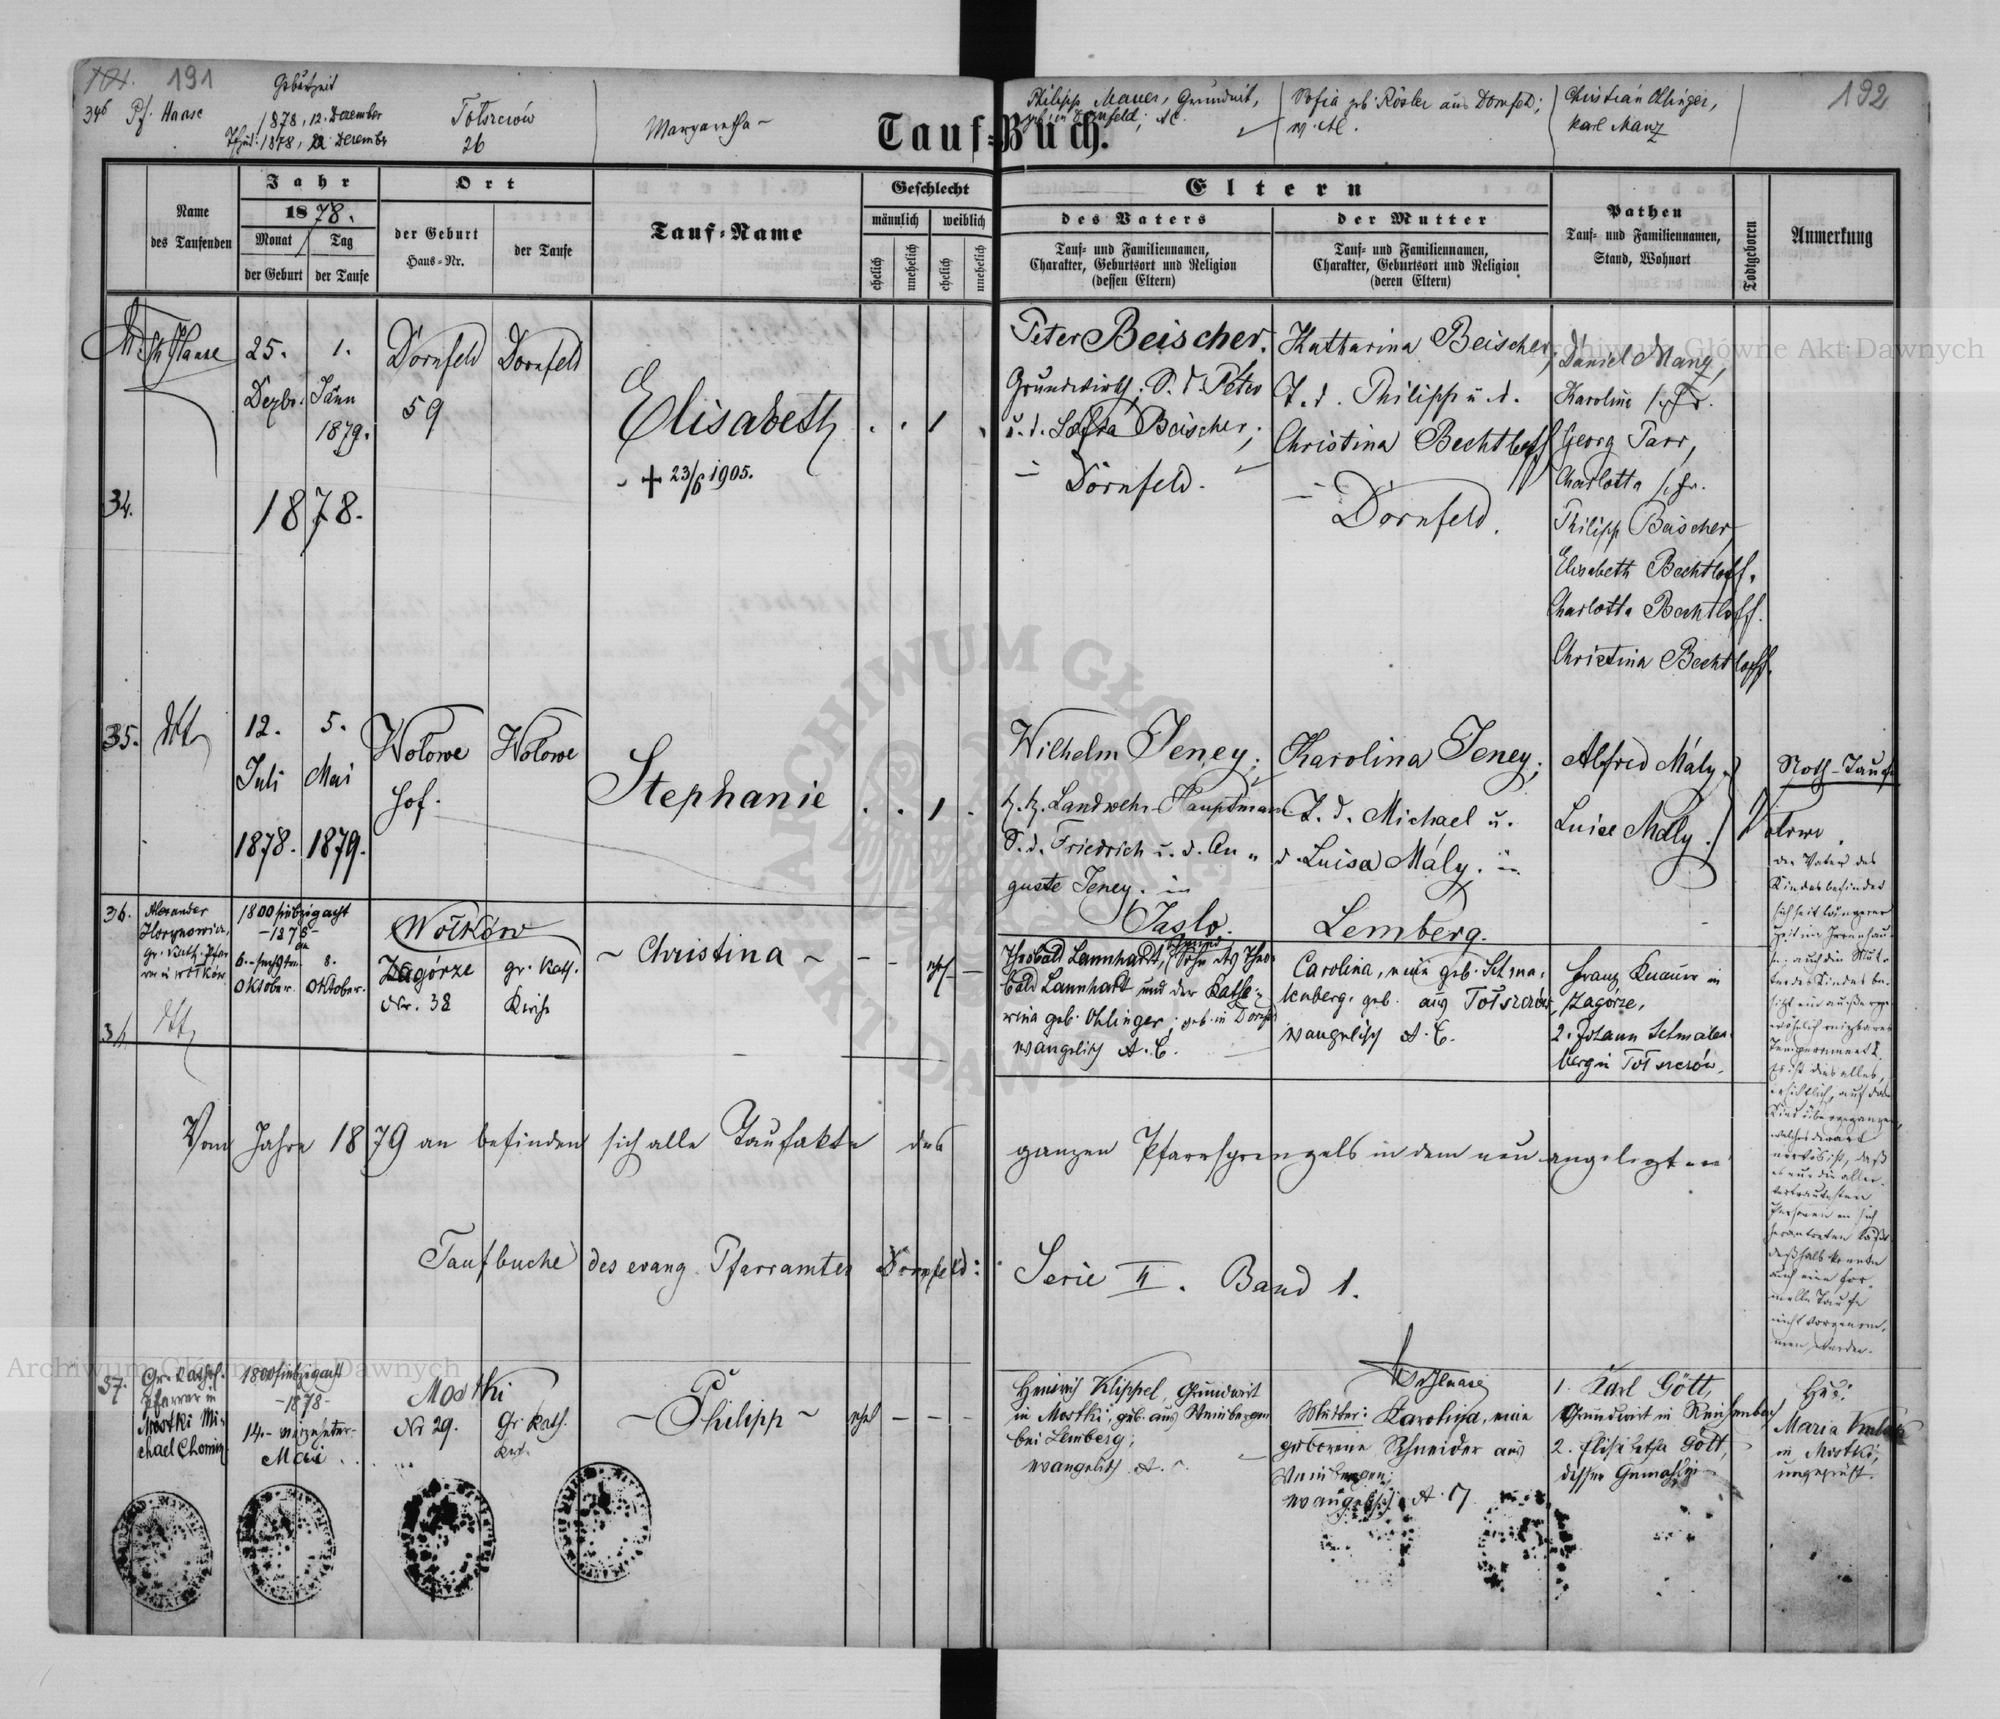 191
346 Pf. Haase
1878, 12. Dezember
1878, Dezember
Tołszczów
26
Margaretha
Philipp Mauer, Grundwirt,
Sofia geb. Rösler aus Dornfeld;
Christian Ohlinger,
Karl Manz
192
Tauf-Buch.
Name
des Taufenden
Jahr
1878.
Monat
Tag
der Geburt
der Taufe
Ort
der Geburt
Haus-Nr.
der Taufe
Tauf-Name
Geschlecht
männlich
weiblich
ehelich
unehelich
ehelich
unehelich
Eltern
des Vaters
Tauf- und Familiennamen,
Charakter, Geburtsort und Religion
(dessen Eltern)
der Mutter
Tauf- und Familiennamen,
Charakter, Geburtsort und Religion
(deren Eltern)
Pathen
Tauf- und Familiennamen,
Stand, Wohnort
Todtgeboren
Anmerkung
34.
Haase
25.
Dezbr.
1878.
1.
Jänn
1879.
Dornfeld
59
Dornfeld
Elisabeth
+ 23/6 1905.
1
Peter Beischer,
Grundwirth; S. d. Peter
u. d. Sofia Beischer;
Dornfeld.
Katharina Beischer,
T. d. Philipp u. d.
Christina Bechtloff
Dornfeld.
Daniel Manz,
Karoline s. Fr.
Georg Parr,
Charlotta s. Fr.
Philipp Beischer,
Elisabeth Bechtloff.
Charlotta Bechtloff.
Christina Bechtloff.
35.
12.
Juli
1878.
5.
Mai
1879.
Wolowe
Hof.
Wolowe
Stephanie
1
Wilhelm Jeney;
k. k. Landwehr-Hauptmann
S. d. Friedrich u. d. Au-
guste Jeney. in
Jaslo.
Karolina Jeney;
T. d. Michael u.
d. Luisa Mály. in
Lemberg.
Alfred Mály.
Luise Mály.
Noth-Taufe
der Vater des
Kindes befindet
sich seit längerer
Zeit im Irrenhau-
Temperament.
Es ist dies alles,
ersichtlich, auf das
Kind übergegangen,
welches derart
nervös ist, daß
es nur die aller-
vertrautesten
Personen an sich
herantreten läßt
deßhalb konnte
auch eine for-
melle Taufe
nicht vorgenom-
men werden.
36.
Alexander
gr. kath. Pfar-
rer in Wołków
1800siebzigacht
-1878-
6.
Oktober
8.
Oktober.
Wołków
Zagórze
Nr. 38
gr. kath.
Kirche
~ Christina ~
ehel
Theobald Lannhardt, Sohn des Theo-
bald Lannhardt und der Katha-
rina geb. Ohlinger; geb. in Dornfeld
evangelisch A. C.
Carolina, eine geb. Schma-
lenberg. geb. aus Tołszczów,
evangelisch A. C.
Franz Knauer in
Zagórze,
2. Johann Schmalen-
berg in Tołszczów.
Vom Jahre 1879 an befinden sich alle Taufakte des ganzen Pfarrsprengels in dem neu angelegten
Taufbuche des evang. Pfarramtes Dornfeld: Serie II. Band 1.
37.
Gr. kathol.
Pfarrer in
Mostki Mi-
chael
1800siebzigacht
-1878-
14.- vierzehnter-
Mai
Mostki
Nr 29.
Gr kath.
~ Philipp ~
ehel
Heinrich Klippel, Grundwirt
in Mostki, geb. aus Weinbergen
bei Lemberg;
evangelisch A. C.
Mutter: Karolina, eine
geborene Schneider aus
Weinbergen;
evangelisch A. C.
1. Karl Gött,
Grundwirt in Reichenbach
2. Elisabetha Gött,
dessen Gemahlin
Heb:
Maria
in Mostki,
ungeprüft.
Archiwum Główne Akt Dawnych
Archiwum Główne Akt Dawnych
ARCHIWUM GŁÓWNE AKT DAWNYCH